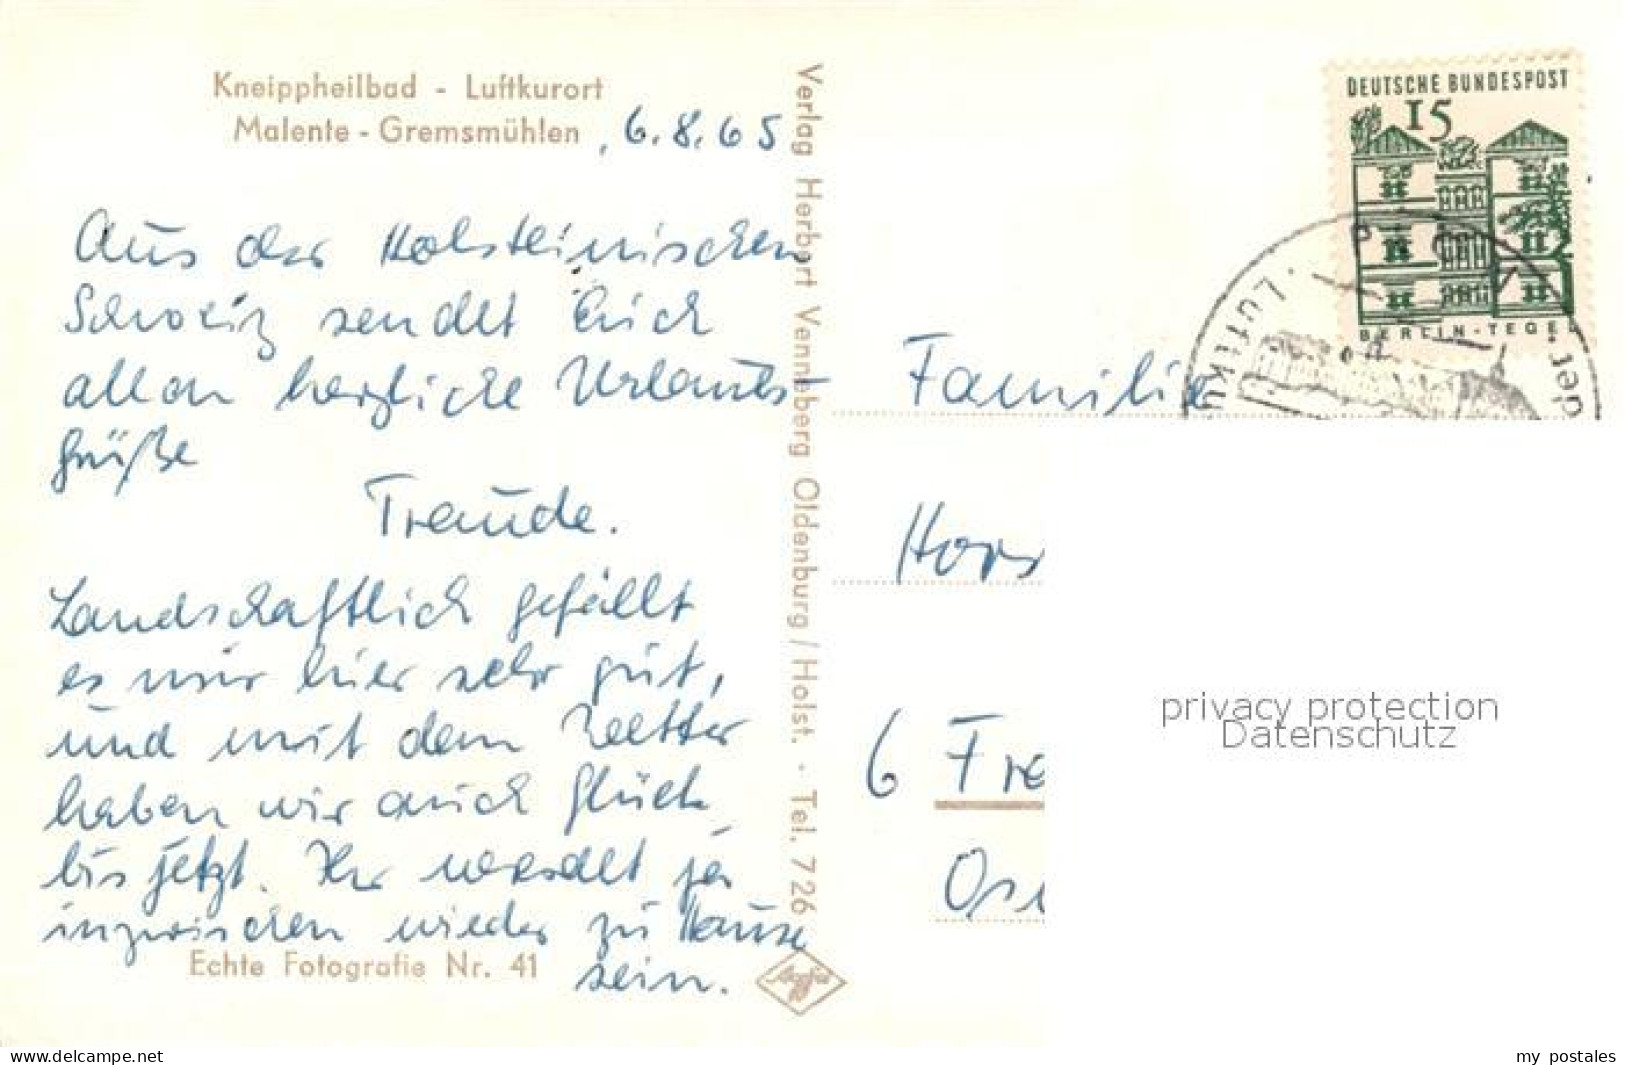 Kneippheilbad - Luftkurort
Malente - Gremsmühlen
, 6.8.65
Aus der Holsteinischen
Schweiz sendet Euch
allen herzliche Urlaubs
grüße
Traude.
Landschaftlich gefällt
es mir hier sehr gut,
und mit dem Wetter
haben wir auch Glück
bis jetzt. Ihr werdet ja
inzwischen wieder zu Hause
sein.
Echte Fotografie Nr. 41
Verlag Herbert Venneberg Oldenburg / Holst. · Tel. 726
DEUTSCHE BUNDESPOST
15
BERLIN - TEGEL
Luftku
der
Familie
Hors
6 Fre
Os
privacy protection
Datenschutz
www.delcampe.net
my_postales